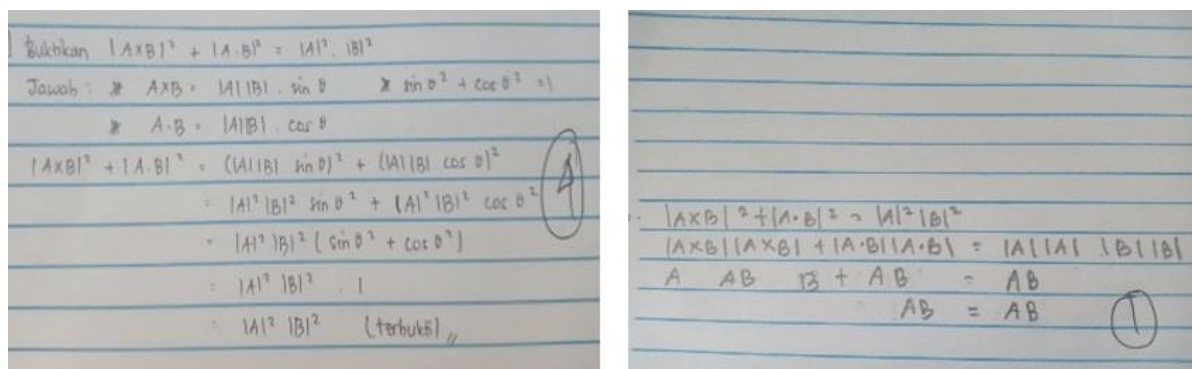 Buktikan |A×B|² + |A.B|² = |A|² . |B|²
Jawab : * A×B = |A||B| . sin θ * sin θ² + cos θ² = 1
* A.B = |A||B| . cos θ
|A×B|² + |A.B|² = (|A||B| sin θ)² + (|A||B| cos θ)²
= |A|² |B|² sin θ² + |A|² |B|² cos θ²
= |A|² |B|² ( sin θ² + cos θ²)
= |A|² |B|² . 1
= |A|² |B|² (terbukti) //
4
|A×B|² + |A•B|² = |A|² |B|²
|A×B||A×B| + |A•B||A•B| = |A||A| . |B||B|
A AB B + AB = AB
AB = AB
1